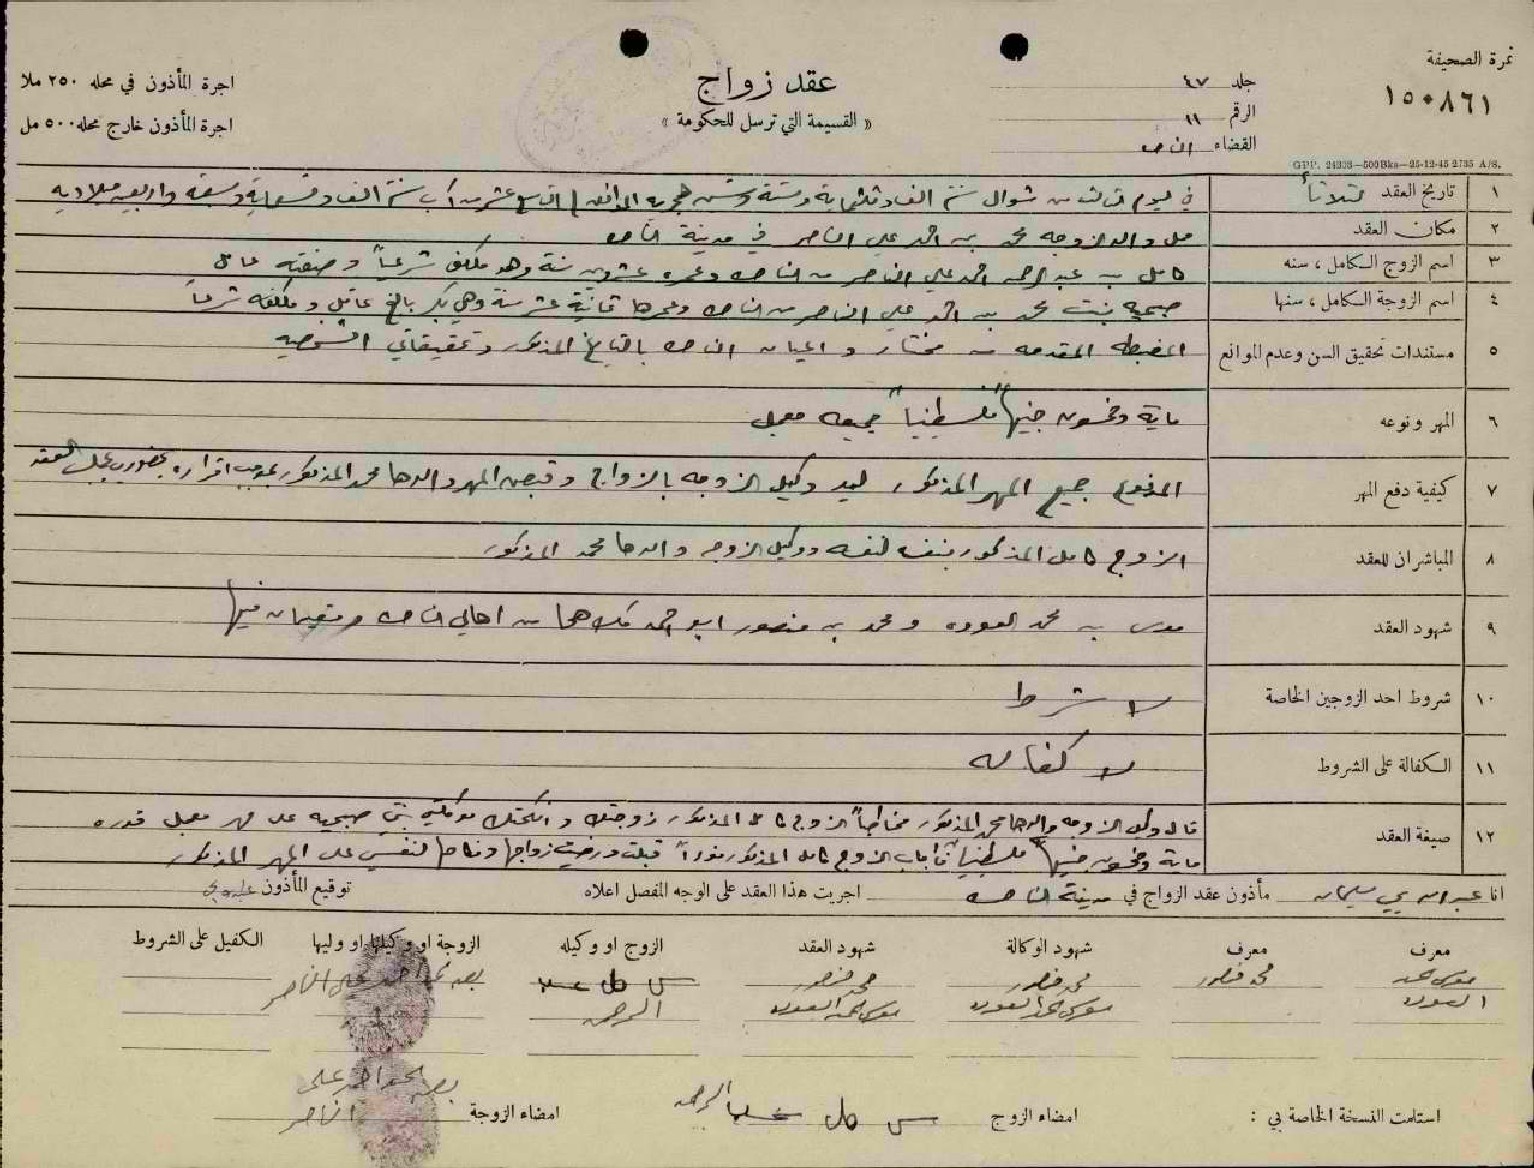 نمرة الصحيفة
١٥٠٨٦١
جلد ٤٧
الرقم ١١
القضاء
عقد زواج
« القسيمة التي ترسل للحكومة »
اجرة المأذون في محله ٢٥٠ ملا
اجرة المأذون خارج محله ٥٠٠ مل
GPP. 24338—500 Bks—25-12-45 2735 A/S.
١ تاريخ العقد في اليوم الثالث من شوال سنة الف وثلثماية وستة وستين هجريه الموافق التاسع عشر من آب سنة الف وتسعماية وسبعة واربعين ميلاديه
٢ مكان العقد والد الزوجه محمد بن احمد علي الناصر في مدينة
٣ اسم الزوج الكامل ، سنه كامل بن عبد الرحمن احمد علي الناصر من وعمره عشرون سنة وهو مكلف شرعاً وصنعته عامل
٤ اسم الزوجة الكامل ، سنها صبحيه بنت محمد بن احمد علي الناصر من وعمرها ثمانية عشر سنة وهي بكر بالغ عاقل ومكلفه شرعاً
٥ مستندات تحقيق السن وعدم الموانع المضبطه المقدمه من مختار و اعيان بالتاريخ المذكور وتحقيقاتي الشخصيه
٦ المهر ونوعه ماية وخمسون جنيهاً فلسطينياً جميعه معجل
٧ كيفية دفع المهر المدفوع جميع المهر المذكور ليد وكيل الزوجه بالزواج وقبض المهر والدها محمد المذكور بموجب اقراره بحضوري بمجلس العقد
٨ المباشران للعقد الزوج كامل المذكور بنفسه لنفسه ووكيل الزوجه والدها محمد المذكور
٩ شهود العقد موسى بن محمد العوده و محمد بن منصور ابو احمد كلاهما من اهالي ومقيمان فيها
١٠ شروط احد الزوجين الخاصة لا شرط
١١ الكفالة على الشروط لا كفاله
١٢ صيغة العقد قال وكيل الزوجه والدها محمد المذكور مخاطباً الزوج كامل المذكور زوجتك وانكحتك موكلتي بنتي صبحيه على مهر معجل قدره
ماية وخمسون جنيهاً فلسطينياً فأجاب الزوج كامل المذكور فوراً قبلت ورضيت زواجها ونكاحها لنفسي على المهر المذكور
انا مأذون عقد الزواج في مدينة اجريت هذا العقد على الوجه المفصل اعلاه توقيع المأذون
معرف معرف شهود الوكالة شهود العقد الزوج او وكيله الزوجة او وكيلها او وليها الكفيل على الشروط
موسى محمد محمد منصور محمد منصور محمد منصور
العوده موسى محمد العوده موسى محمد العوده
استلمت النسخة الخاصة بي : امضاء الزوج امضاء الزوجة